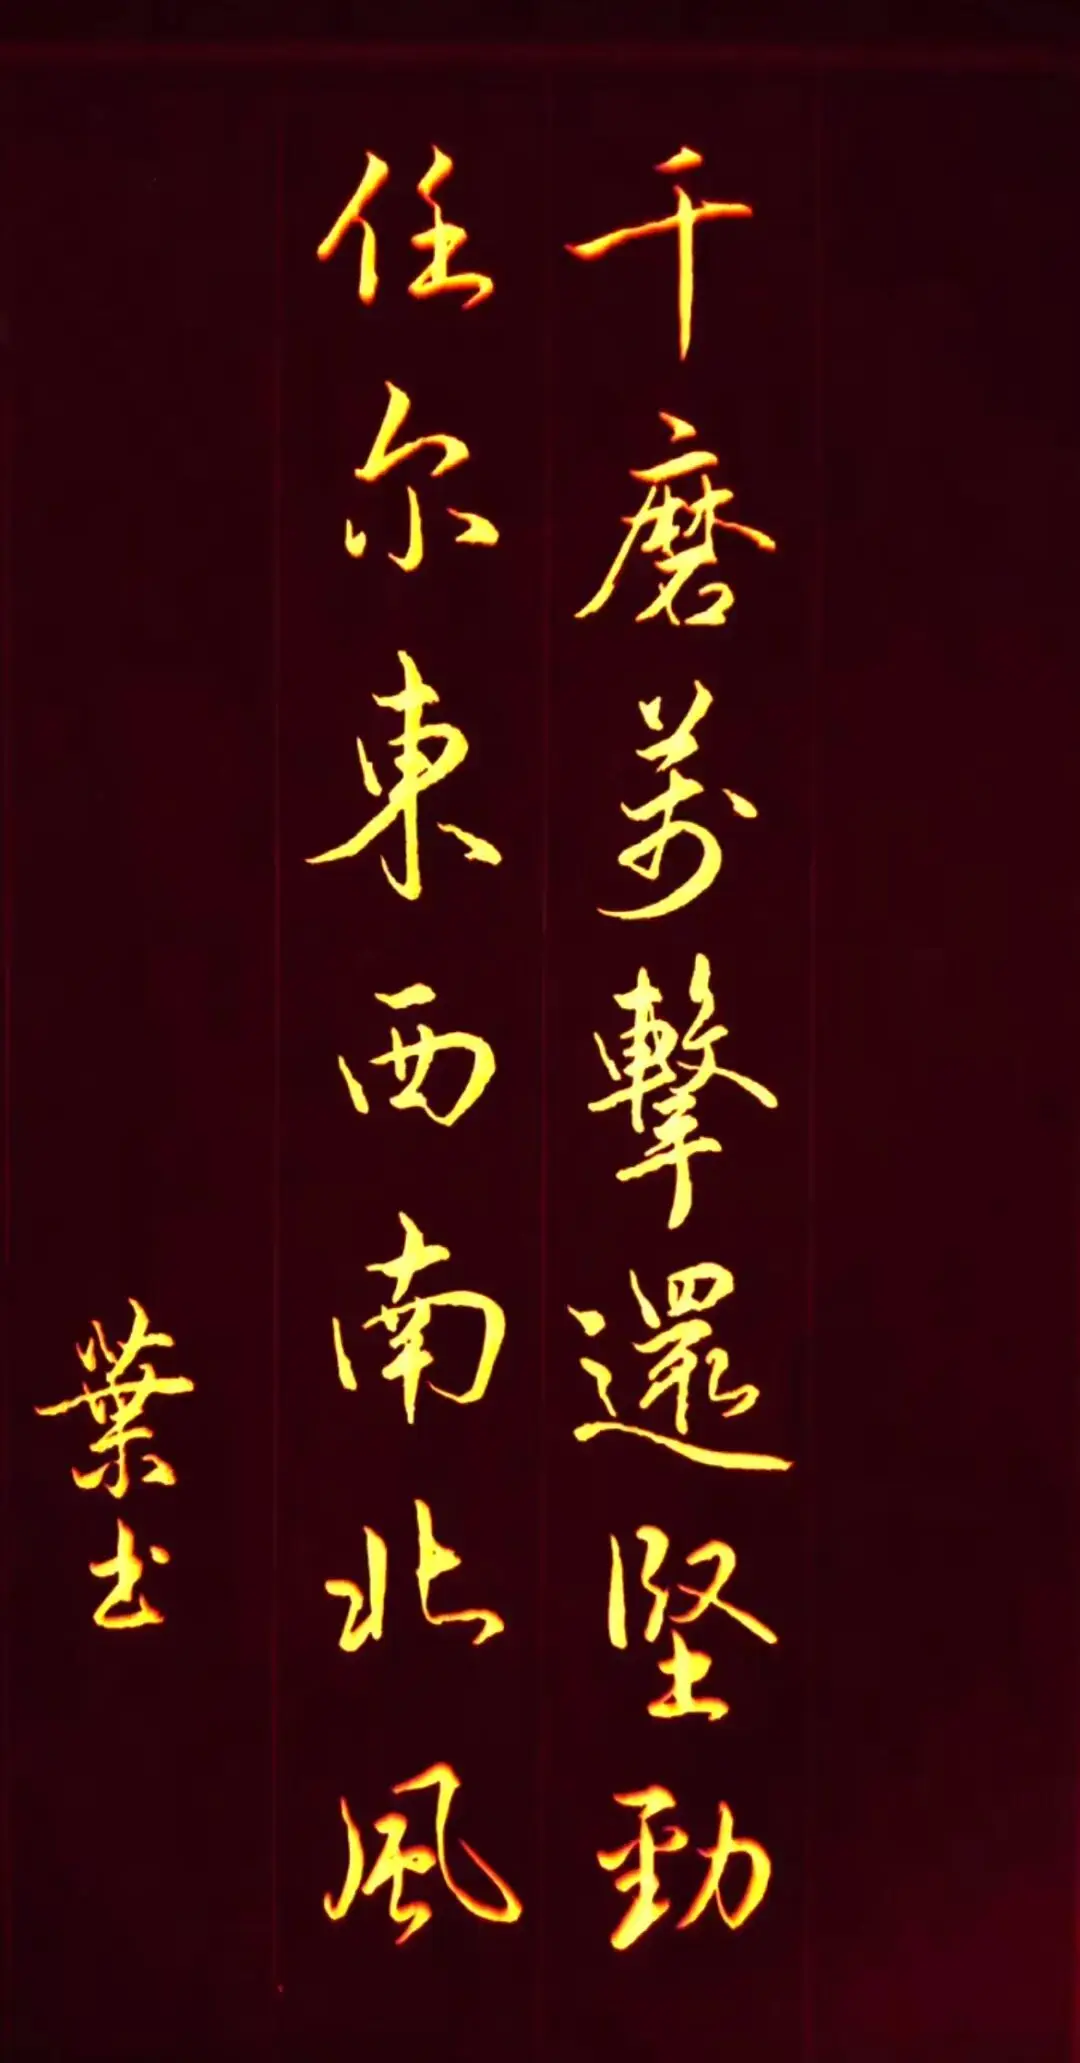 千磨萬擊還堅勁
任尔東西南北風
葉书